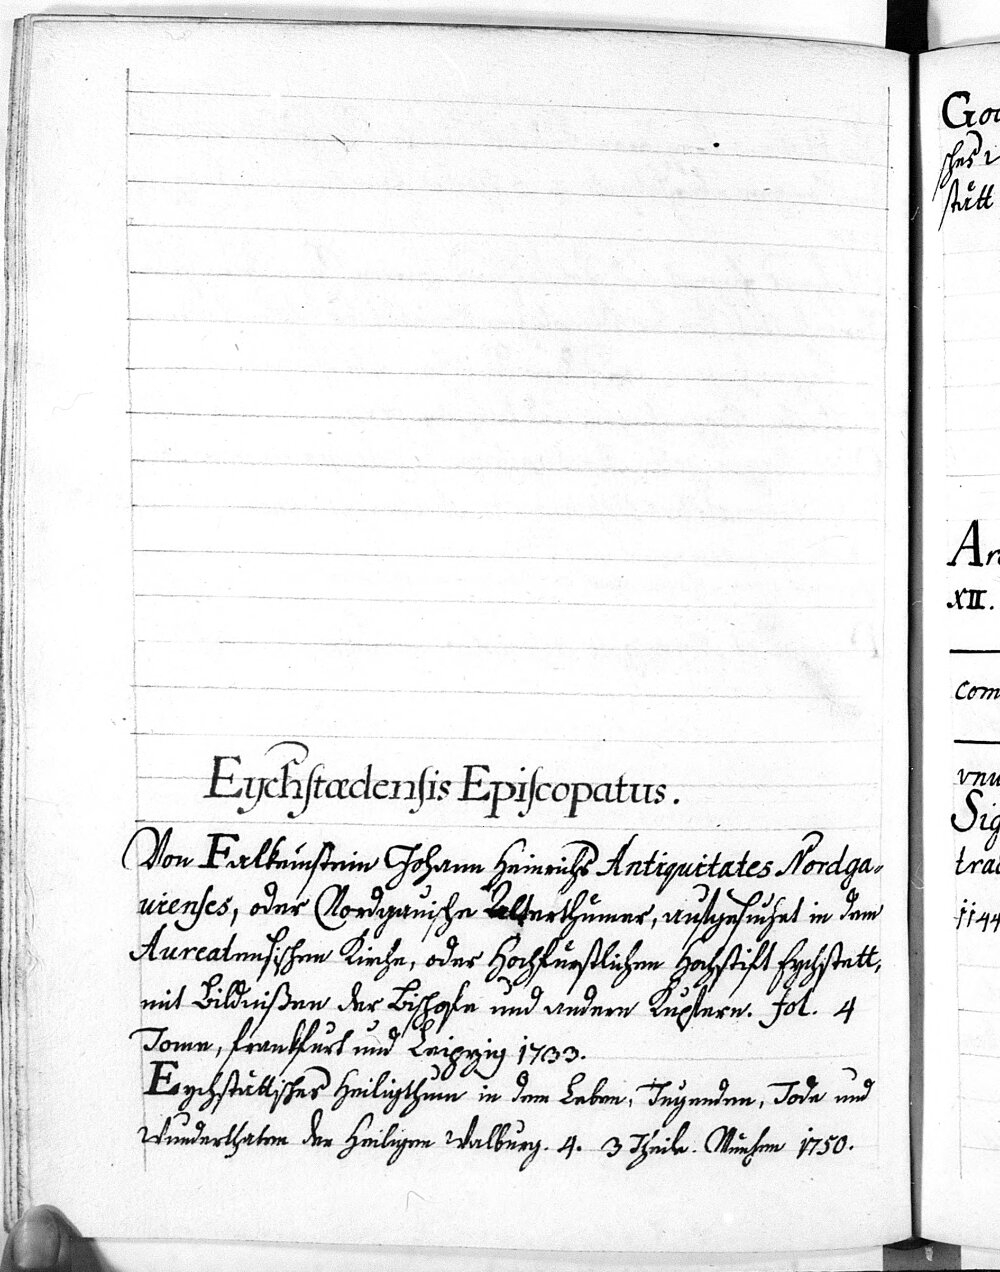 Eychstædensis Episcopatus.
Von Falkenstein Johann Heinrichs Antiquitates Nordga-
vienses, oder Nordgauische Alterthümer, aufgesuchet in dem
Aureatensischen Kirche, oder Hochfürstlichen Hochstift Eychstett,
mit Bildnißen der Bischofe und andern Kupfern. fol. 4
Tome, Frankfurt und Leipzig 1733.
Eychstättisches Heiligthum in dem Leben, Tugenden, Tode und
Wunderthaten der Heiligen Walburg. 4. 3 Theile. München 1750.
sches
stätt
XII.
com